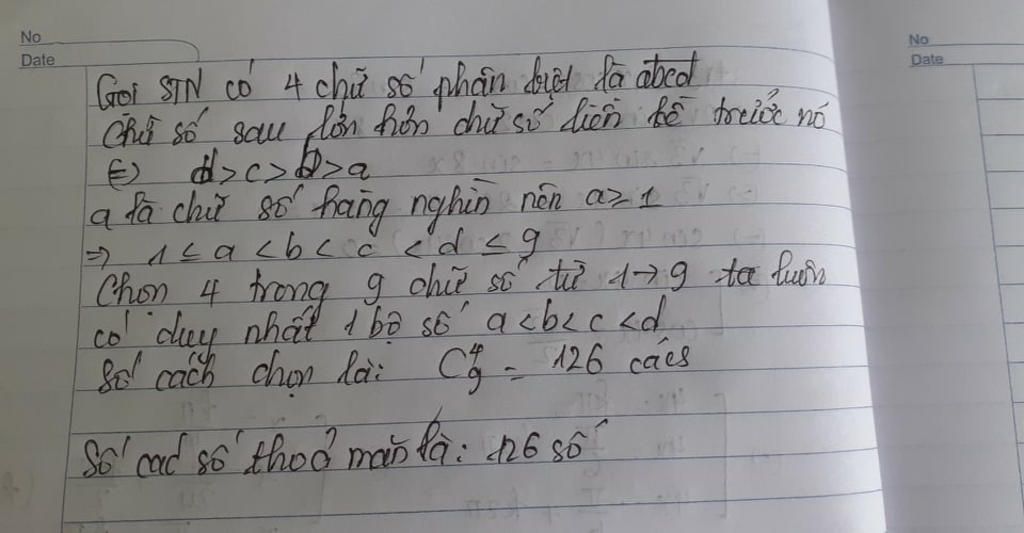 No
Date
Gọi STN có 4 chữ số phân biệt là abcd
Chữ số sau lớn hơn chữ số liền kề trước nó
(=) d > c > b > a
a là chữ số hàng nghìn nên a ≥ 1
⇒ 1 ≤ a < b < c < d ≤ 9
Chọn 4 trong 9 chữ số từ 1 → 9 ta luôn
có duy nhất 1 bộ số a < b < c < d
Số cách chọn là: C⁴₉ = 126 cács
Số các số thoả mãn là: 126 số
No
Date